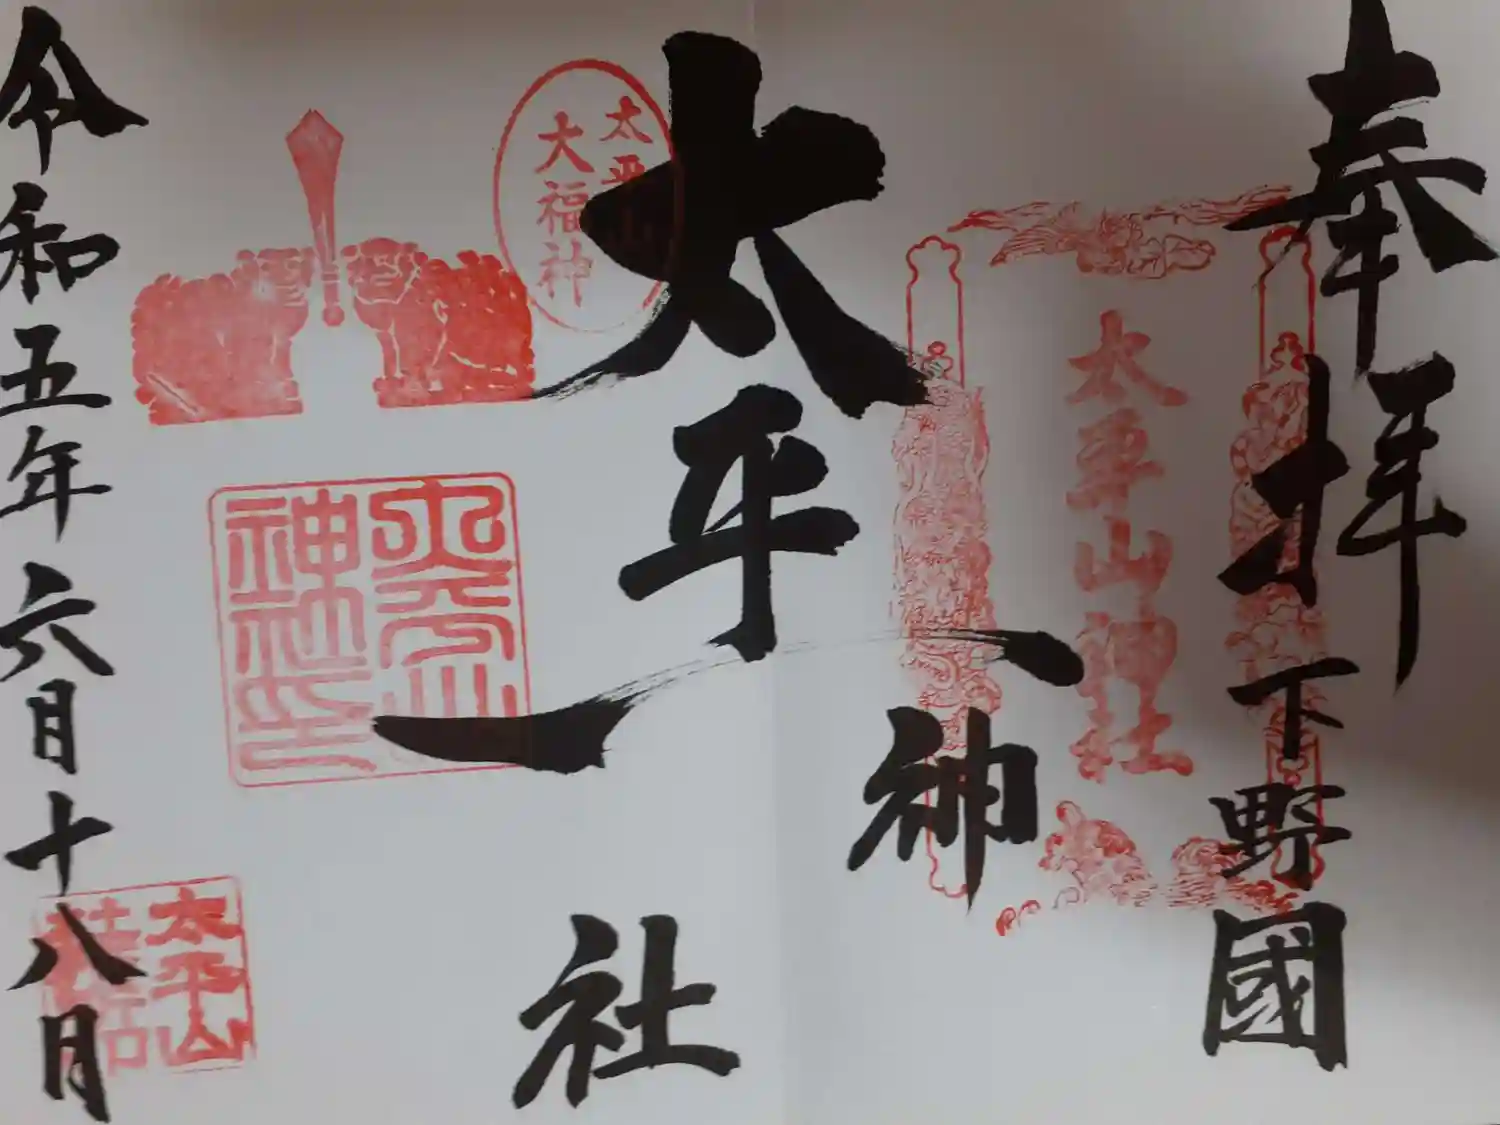 奉拝
下野國
太平山神社
太平山神社
太平山
大福神
太平山
神社印
太平山
令和五年六月十八日